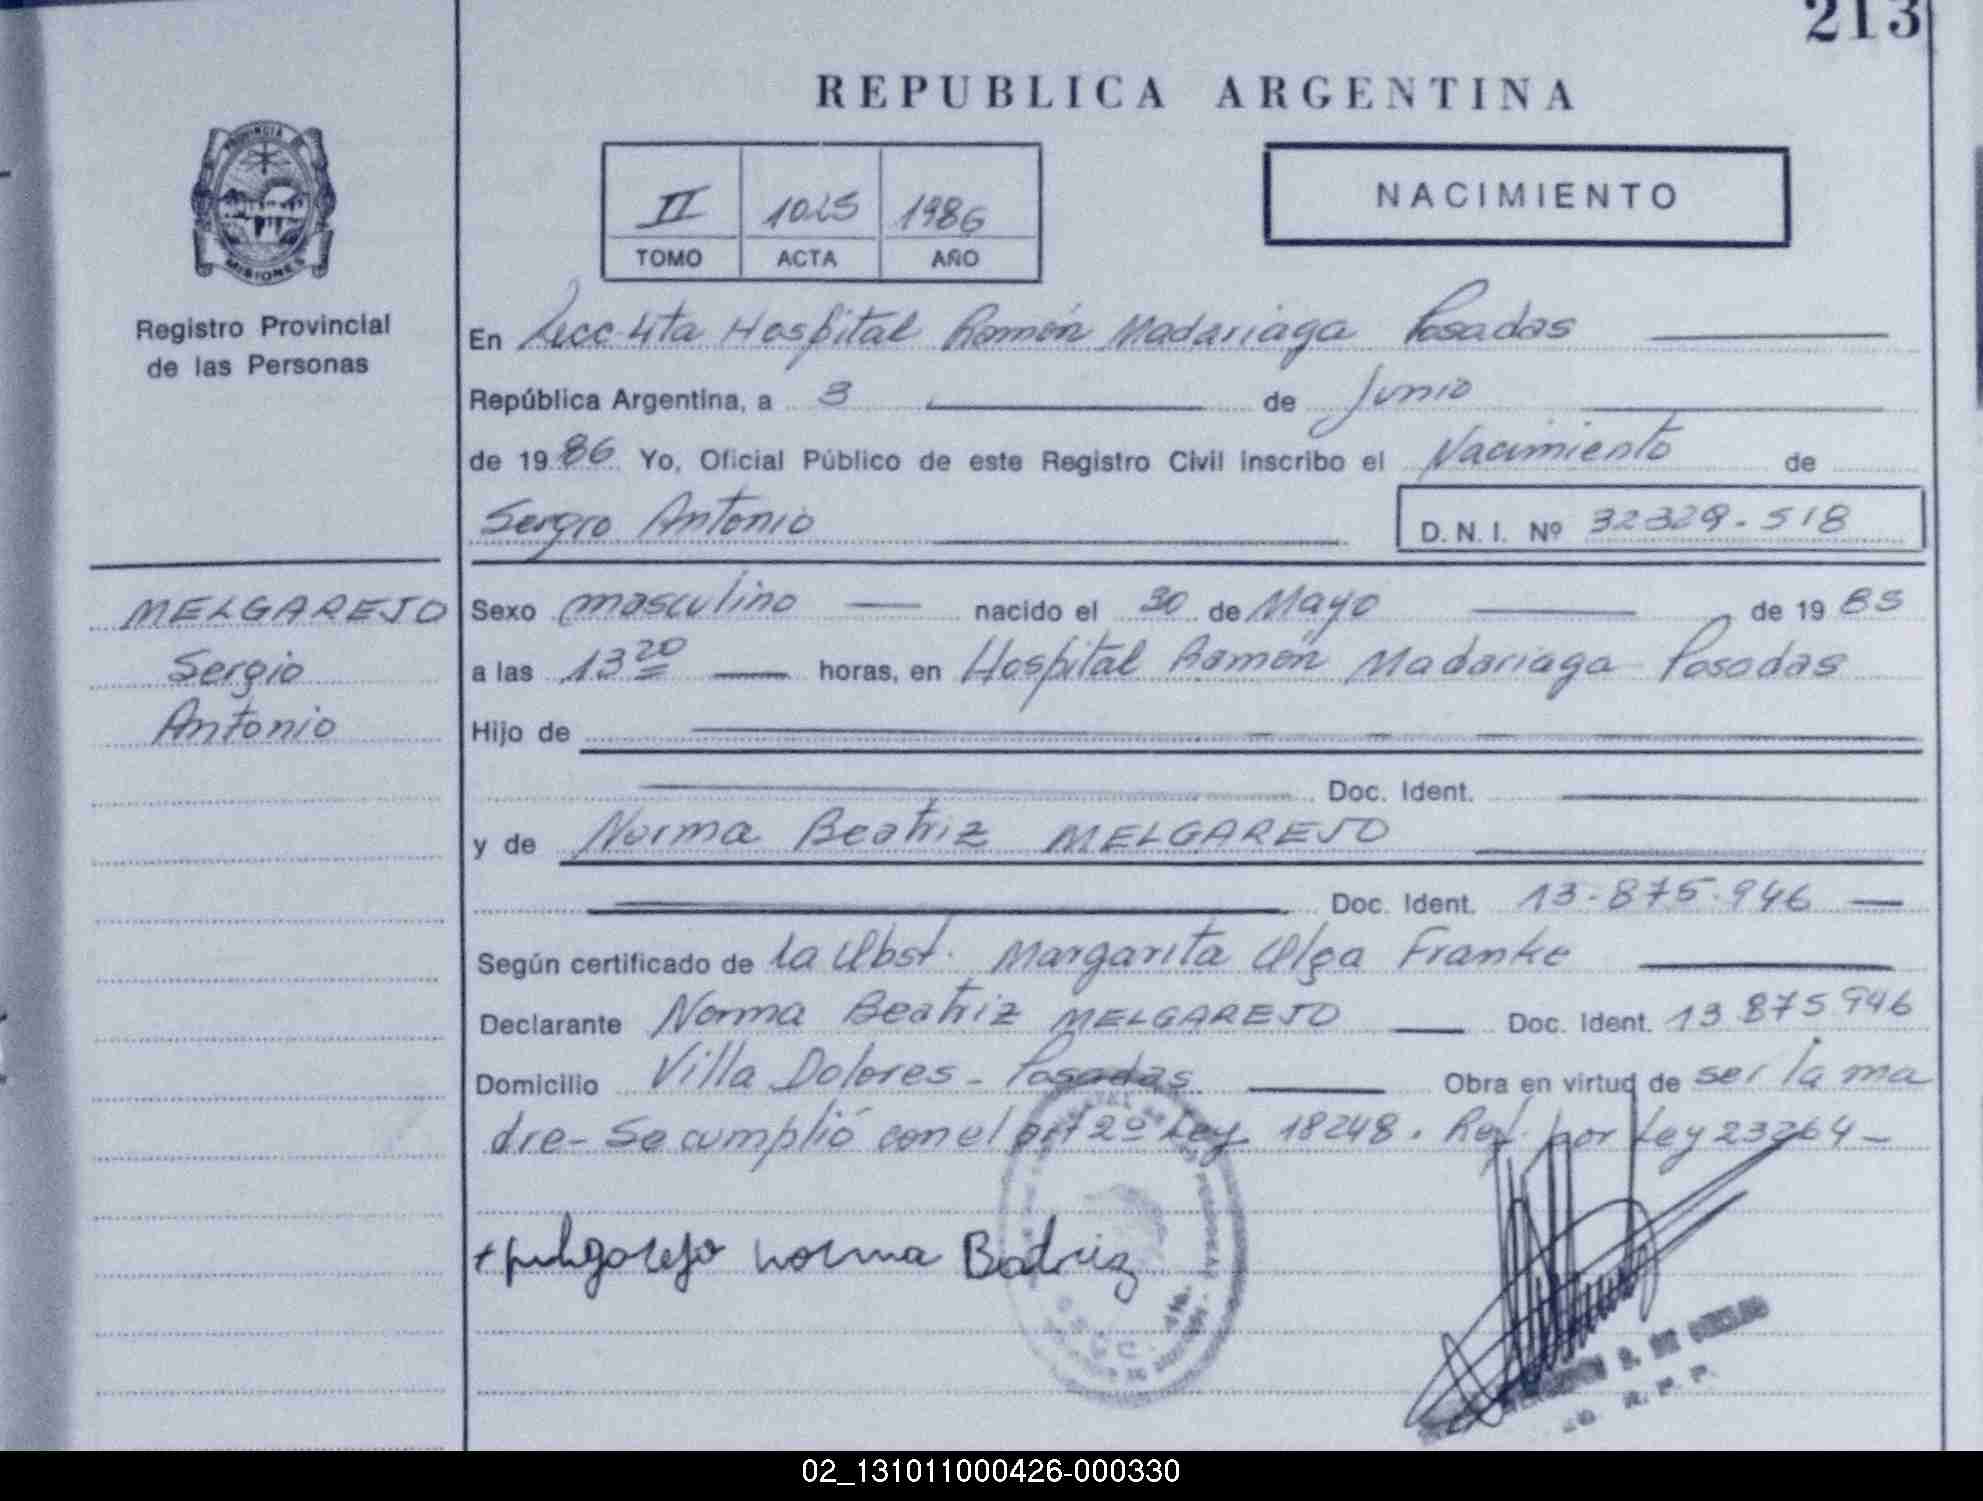 213
REPUBLICA ARGENTINA
PROVINCIA DE
MISIONES
Registro Provincial
de las Personas
II 1025 1986
TOMO ACTA AÑO
NACIMIENTO
En Secc 4ta Hospital Ramón Madariaga Posadas
República Argentina, a 3 de Junio
de 1986 Yo, Oficial Público de este Registro Civil inscribo el Nacimiento de
Sergio Antonio D. N. I. Nº 32329.518
MELGAREJO
Sergio
Antonio
Sexo masculino nacido el 30 de Mayo de 19
a las 13 20 horas, en Hospital Ramón Madariaga Posadas
Hijo de
Doc. Ident.
y de Norma Beatriz MELGAREJO
Doc. Ident. 13.875.946
Según certificado de la Obst. Margarita Olga Franke
Declarante Norma Beatriz MELGAREJO Doc. Ident. 13 875 946
Domicilio Villa Dolores - Posadas Obra en virtud de ser la ma
dre - Se cumplió con el art 2º Ley 18248. Ref. por Ley 23264 -
Melgarejo Norma Batriz
R. P. P.
02_131011000426-000330